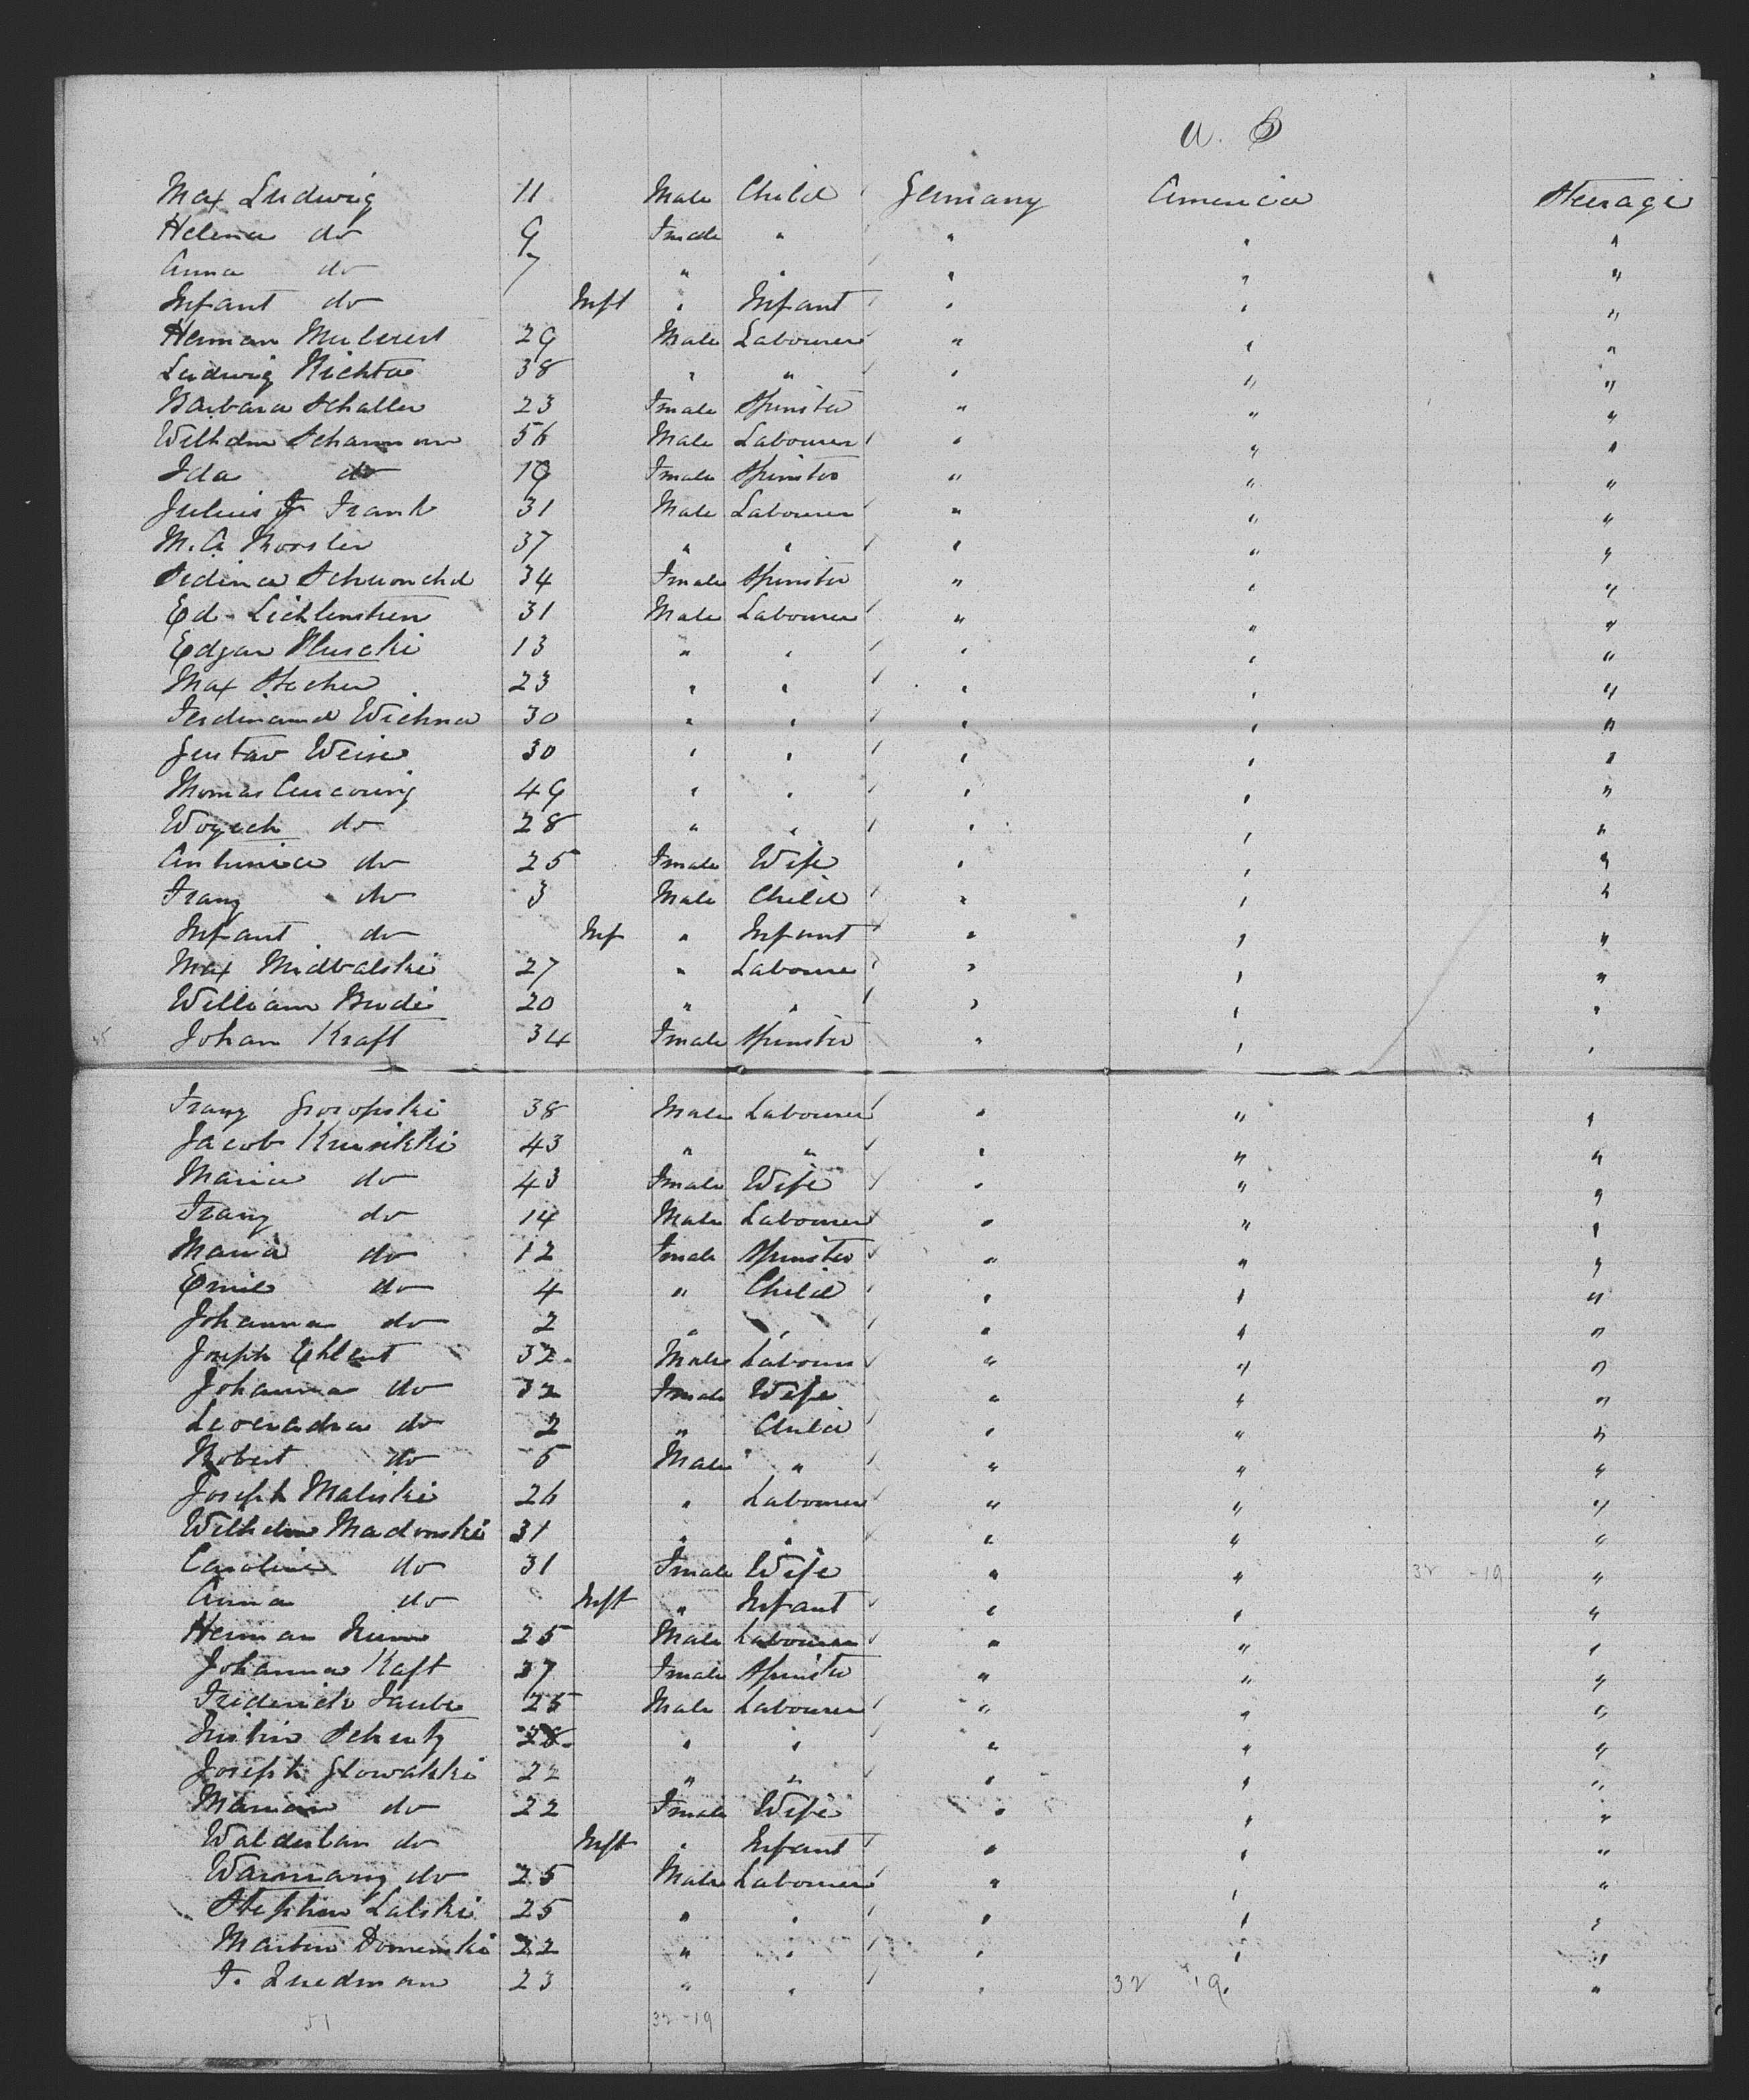 U. S
Max Ludwig 11 Male Child Germany America Steerage
Helena do 9 Fmale " " " "
Anna do 7 " " " " "
Infant do Inft " Infant " " "
Herman 29 Male Labourer " " "
Ludwig Richta 38 " " " " "
Barbara Schaller 23 Fmale Spinster " " "
Wilhelm Schamman 56 Male Labourer " " "
Ida do 19 Fmale Spinster " " "
Julius F Frank 31 Male Labourer " " "
M. A. Rossler 37 " " " " "
34 Fmale Spinster " " "
Ed Lichtenstein 31 Male Labourer " " "
Edgar 13 " " " " "
Max Stecher 23 " " " " "
Ferdinand Wichna 30 " " " " "
Gustav Weise 30 " " " " "
Thomas 49 " " " " "
Woyech do 28 " " " " "
Antonica do 25 Fmale Wife " " "
Franz do 3 Male Child " " "
Infant do Inf " Infant " " "
Max Midbalski 27 " Labourer " " "
William Bude 20 " " " " "
Johan Kraft 34 Fmale Spinster " " "
Franz 38 Male Labourer " " "
Jacob 43 " " " " "
Maria do 43 Fmale Wife " " "
Franz do 14 Male Labourer " " "
Maria do 12 Fmale Spinster " " "
Emil do 4 " Child " " "
Johanna do 2 " " " " "
Joseph Ehlert 32 Male Labourer " " "
Johanna do 32 Fmale Wife " " "
Leocadia do 2 " Child " " "
Robert do 5 Male " " " "
Joseph Maliski 26 " Labourer " " "
Wilhelm Madonski 31 " " " " "
Caroline do 31 Fmale Wife " " 32 - 19 "
Anna do Inft " Infant " " "
Herman 25 Male Labourer " " "
Johanna Kaft 37 Fmale Spinster " " "
Frederich Taube 25 Male Labourer " " "
Schultz 28 " " " " "
Joseph Glowatzki 22 " " " " "
Marian do 22 Fmale Wife " " "
Waldeslav do Inft " Infant " " "
do 25 Male Labourer " " "
Stephen Lalski 25 " " " " "
Martin Domenski 22 " " " " "
F. Luedman 23 " " " 32 19. "
51 32 - 19